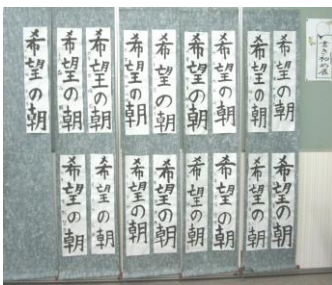 希望の朝
希望の朝
希望の朝
希望の朝
希望の朝
希望の朝
希望の朝
希望の朝
希望の朝
書き初め展
希望の朝
希望の朝
希望の朝
希望の朝
希望の朝
希望の朝
希望の朝
希望の朝